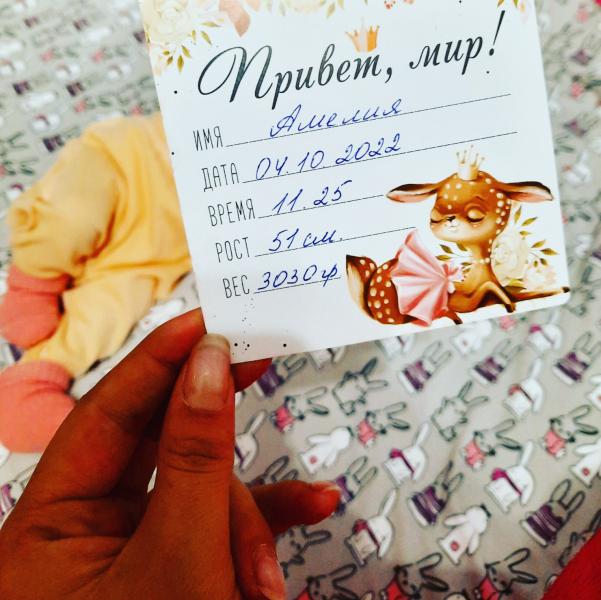 Привет, мир!
ИМЯ Амелия
ДАТА 04.10.2022
ВРЕМЯ 11.25
РОСТ 51 см.
ВЕС 3030 гр